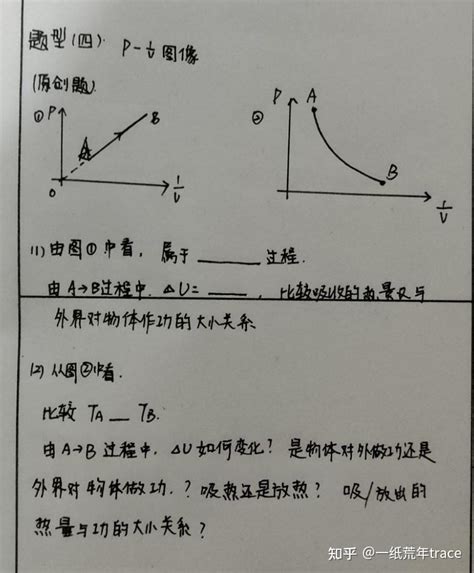 题型(四): P-1/V图像
(原创题)
① P B ② P A
A B
O 1/V 1/V
(1) 由图①中看, 属于______过程.
由A→B过程中, ΔU=______, 比较吸收的热量及与
外界对物体作功的大小关系
(2) 从图②中看.
比较 TA __ TB.
由A→B过程中, ΔU如何变化? 是物体对外做功还是
外界对物体做功.? 吸热还是放热? 吸/放出的
热量与功的大小关系?
知乎 @一纸荒年trace